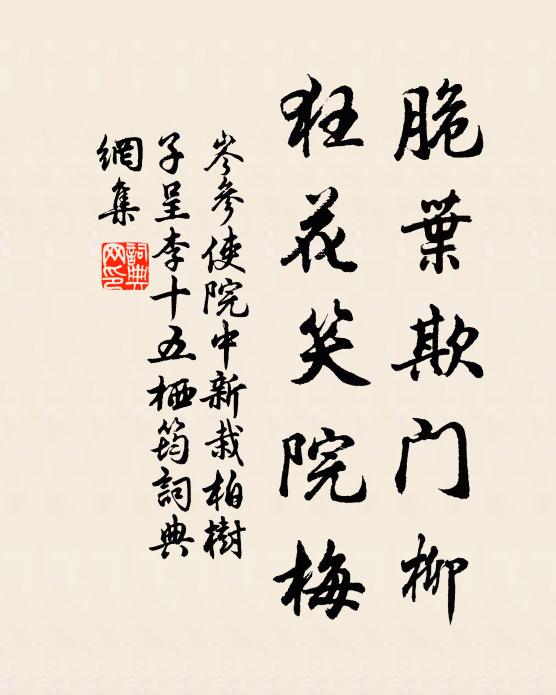 脆葉欺门柳
狂花笑院梅
岑參使院中新栽柏樹
子呈李十五栖筠詞典
網集
詞典
网印